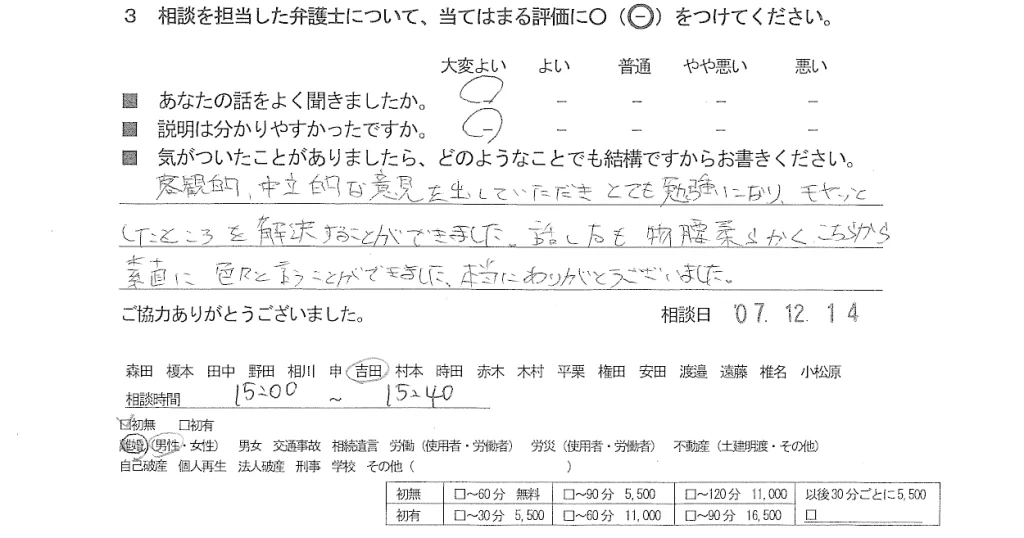 3 相談を担当した弁護士について、当てはまる評価に〇（㊀）をつけてください。
大変よい よい 普通 やや悪い 悪い
■ あなたの話をよく聞きましたか。 － － － － －
■ 説明は分かりやすかったですか。 － － － － －
■ 気がついたことがありましたら、どのようなことでも結構ですからお書きください。
客観的、中立的な意見を出していただきとても勉強になり、モヤッと
したところを解決することができました。話し方も物腰柔らかく、こちらから
素直に色々と言うことができました、本当にありがとうございました。
ご協力ありがとうございました。 相談日 '07. 12. 14
森田 榎本 田中 野田 相川 申 吉田 村本 時田 赤木 木村 平栗 権田 安田 渡邉 遠藤 椎名 小松原
相談時間 15:00 ～ 15:40
☑初無 □初有
離婚（男性・女性） 男女 交通事故 相続遺言 労働（使用者・労働者） 労災（使用者・労働者） 不動産（土建明渡・その他）
自己破産 個人再生 法人破産 刑事 学校 その他（ ）
初無 □～60分 無料 □～90分 5,500 □～120分 11,000 以後30分ごとに5,500
初有 □～30分 5,500 □～60分 11,000 □～90分 16,500 □